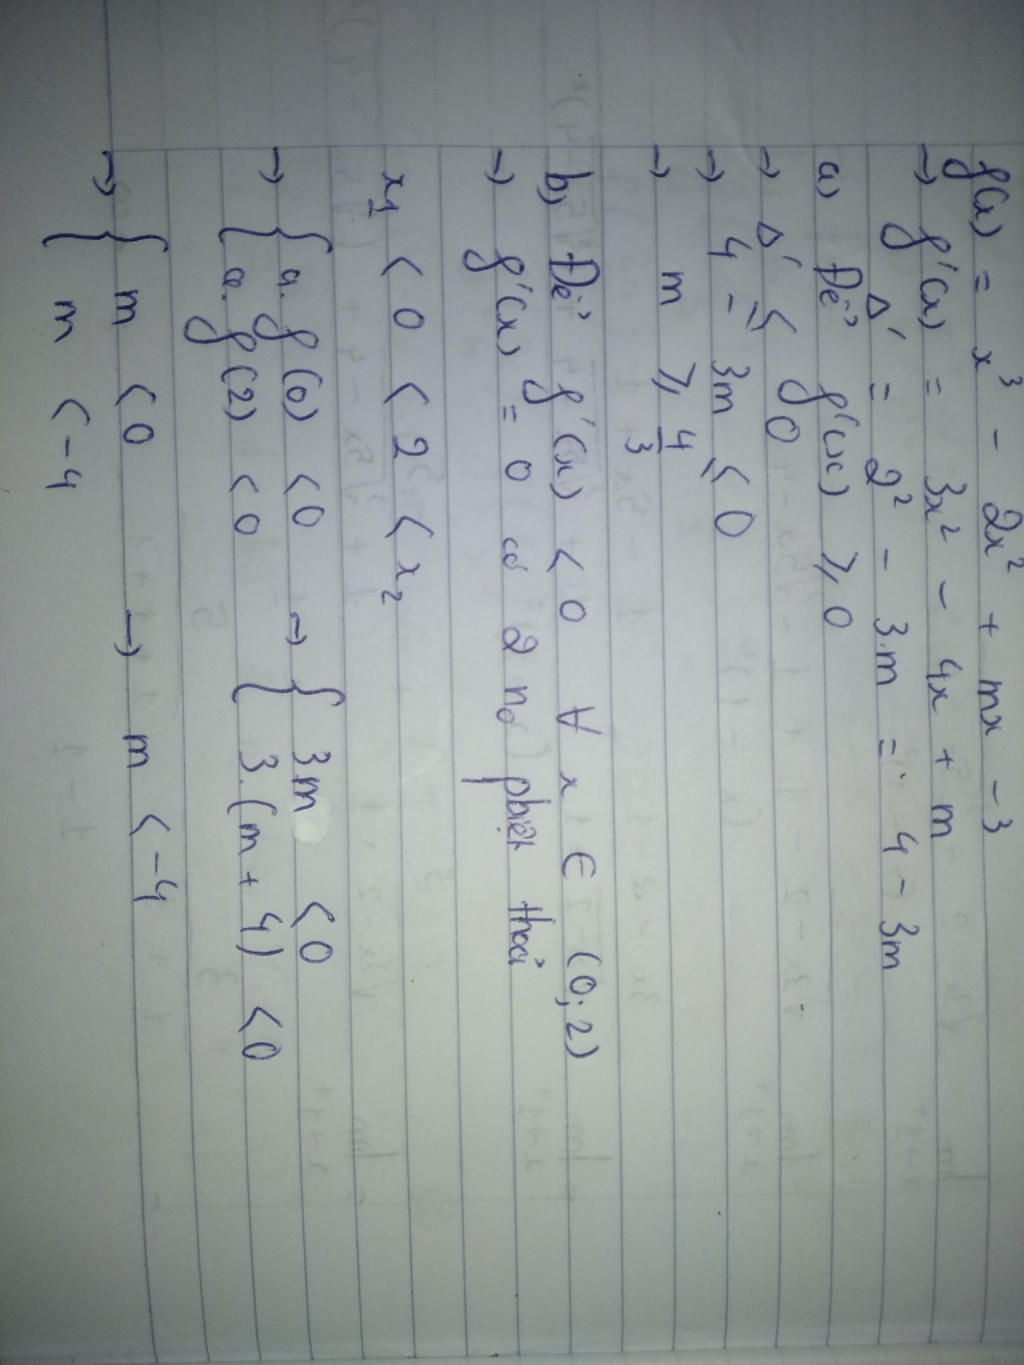 f(x) = x³ - 2x² + mx - 3
→ f'(x) = 3x² - 4x + m
Δ' = 2² - 3.m = 4 - 3m
a) Để f'(x) ⩾ 0
→ Δ' ⩽ 0
→ 4 - 3m ⩽ 0
→ m ⩾ 4/3
b) Để f'(x) < 0 ∀ x ∈ (0; 2)
→ f'(x) = 0 có 2 no pbiệt thoả
x₁ < 0 < 2 < x₂
→ { a. f(0) < 0 → { 3.m < 0
{ a. f(2) < 0 { 3.(m + 4) < 0
→ { m < 0 → m < -4
{ m < -4